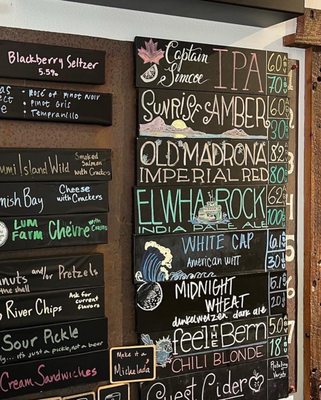 Blackberry Seltzer
5.5%
Rosé of Pinot Noir
Pinot Gris
Tempranillo
umi Island Wild Smoked Salmon with Crackers
mish Bay Cheese with Crackers
Lum Farm Chevre with Crackers
anuts and/or Pretzels
the shell
River Chips Ask for current flavors
Sour Pickle
...it's just a pickle, not a
Cream Sandwiches
Make it a
Michelada
Captain Simcoe IPA 6.0% 70
Sunrise Amber 6.0% 30
Old Madrona 8.2%
Imperial Red 80
Elwha Rock 6.2%
India Pale Ale 100
White Cap
American Witt 30
Midnight Wheat
dunkelweizen dark ale 20
feel the Bern 5.0
Chili Blonde 18
Guest Cider